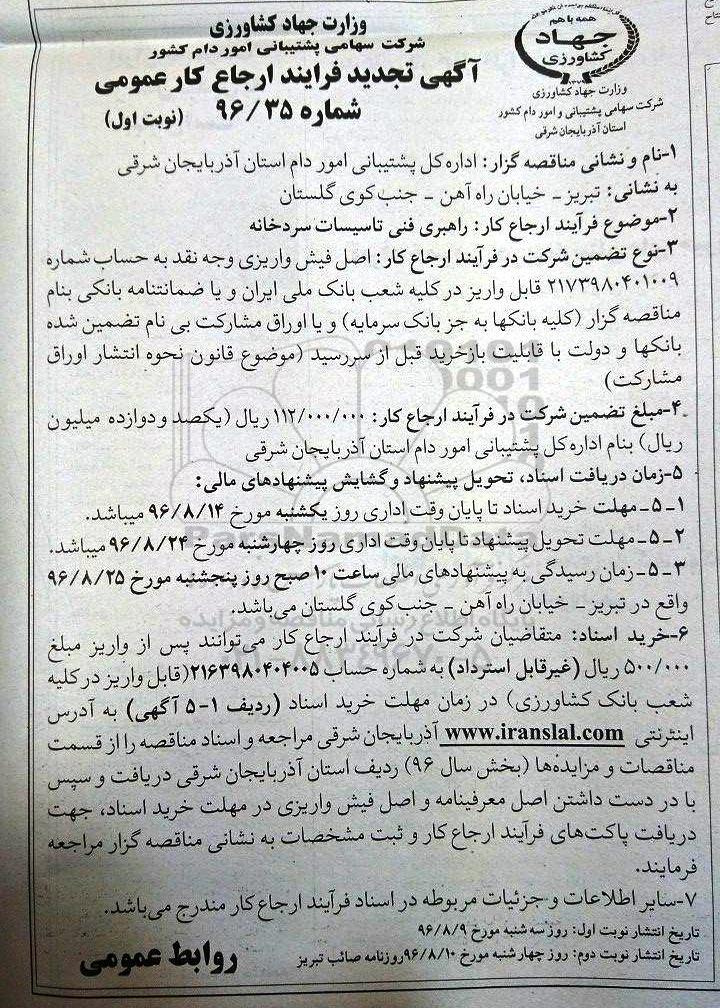 همه با هم
جهاد
کشاورزی
وزارت جهاد کشاورزی
شرکت سهامی پشتیبانی و امور دام کشور
استان آذربایجان شرقی
وزارت جهاد کشاورزی
شرکت سهامی پشتیبانی امور دام کشور
آگهی تجدید فرایند ارجاع کار عمومی
شماره ۹۶/۳۵ (نوبت اول)
۱-نام و نشانی مناقصه گزار: اداره کل پشتیبانی امور دام استان آذربایجان شرقی
به نشانی: تبریز - خیابان راه آهن - جنب کوی گلستان
۲-موضوع فرآیند ارجاع کار: راهبری فنی تاسیسات سردخانه
۳-نوع تضمین شرکت در فرآیند ارجاع کار: اصل فیش واریزی وجه نقد به حساب شماره
۲۱۷۳۹۸۰۴۰۱۰۰۹ قابل واریز در کلیه شعب بانک ملی ایران و یا ضمانتنامه بانکی بنام
مناقصه گزار (کلیه بانکها به جز بانک سرمایه) و یا اوراق مشارکت بی نام تضمین شده
بانکها و دولت با قابلیت بازخرید قبل از سررسید (موضوع قانون نحوه انتشار اوراق
مشارکت)
۴-مبلغ تضمین شرکت در فرآیند ارجاع کار: ۱۱۲/۰۰۰/۰۰۰ ریال (یکصد و دوازده میلیون
ریال) بنام اداره کل پشتیبانی امور دام استان آذربایجان شرقی
۵-زمان دریافت اسناد، تحویل پیشنهاد و گشایش پیشنهادهای مالی:
۱-۵- مهلت خرید اسناد تا پایان وقت اداری روز یکشنبه مورخ ۹۶/۸/۱۴ میباشد.
۲-۵- مهلت تحویل پیشنهاد تا پایان وقت اداری روز چهارشنبه مورخ ۹۶/۸/۲۴ میباشد.
۳-۵- زمان رسیدگی به پیشنهادهای مالی ساعت ۱۰ صبح روز پنجشنبه مورخ ۹۶/۸/۲۵
واقع در تبریز - خیابان راه آهن - جنب کوی گلستان می‌باشد.
۶-خرید اسناد: متقاضیان شرکت در فرآیند ارجاع کار می‌توانند پس از واریز مبلغ
۵۰۰/۰۰۰ ریال (غیرقابل استرداد) به شماره حساب ۲۱۶۳۹۸۰۴۰۴۰۰۵(قابل واریز در کلیه
شعب بانک کشاورزی) در زمان مهلت خرید اسناد (ردیف ۱-۵ آگهی) به آدرس
اینترنتی www.iranslal.com آذربایجان شرقی مراجعه و اسناد مناقصه را از قسمت
مناقصات و مزایده‌ها (بخش سال ۹۶) ردیف استان آذربایجان شرقی دریافت و سپس
با در دست داشتن اصل معرفینامه و اصل فیش واریزی در مهلت خرید اسناد، جهت
دریافت پاکت‌های فرآیند ارجاع کار و ثبت مشخصات به نشانی مناقصه گزار مراجعه
فرمایند.
۷-سایر اطلاعات و جزئیات مربوطه در اسناد فرآیند ارجاع کار مندرج می‌باشد.
تاریخ انتشار نوبت اول: روز سه شنبه مورخ ۹۶/۸/۹
تاریخ انتشار نوبت دوم: روز چهارشنبه مورخ ۹۶/۸/۱۰روزنامه صائب تبریز
روابط عمومی